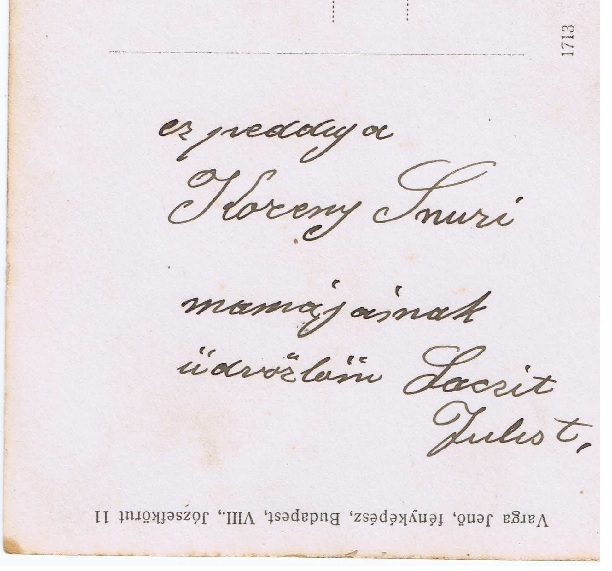 1713
ez peddig a
Kozeny Snuri
mamájáinak
üdvözlöm Laczit
Julist,
Varga Jenő, fényképész, Budapest, VIII., Józsefkörut 11